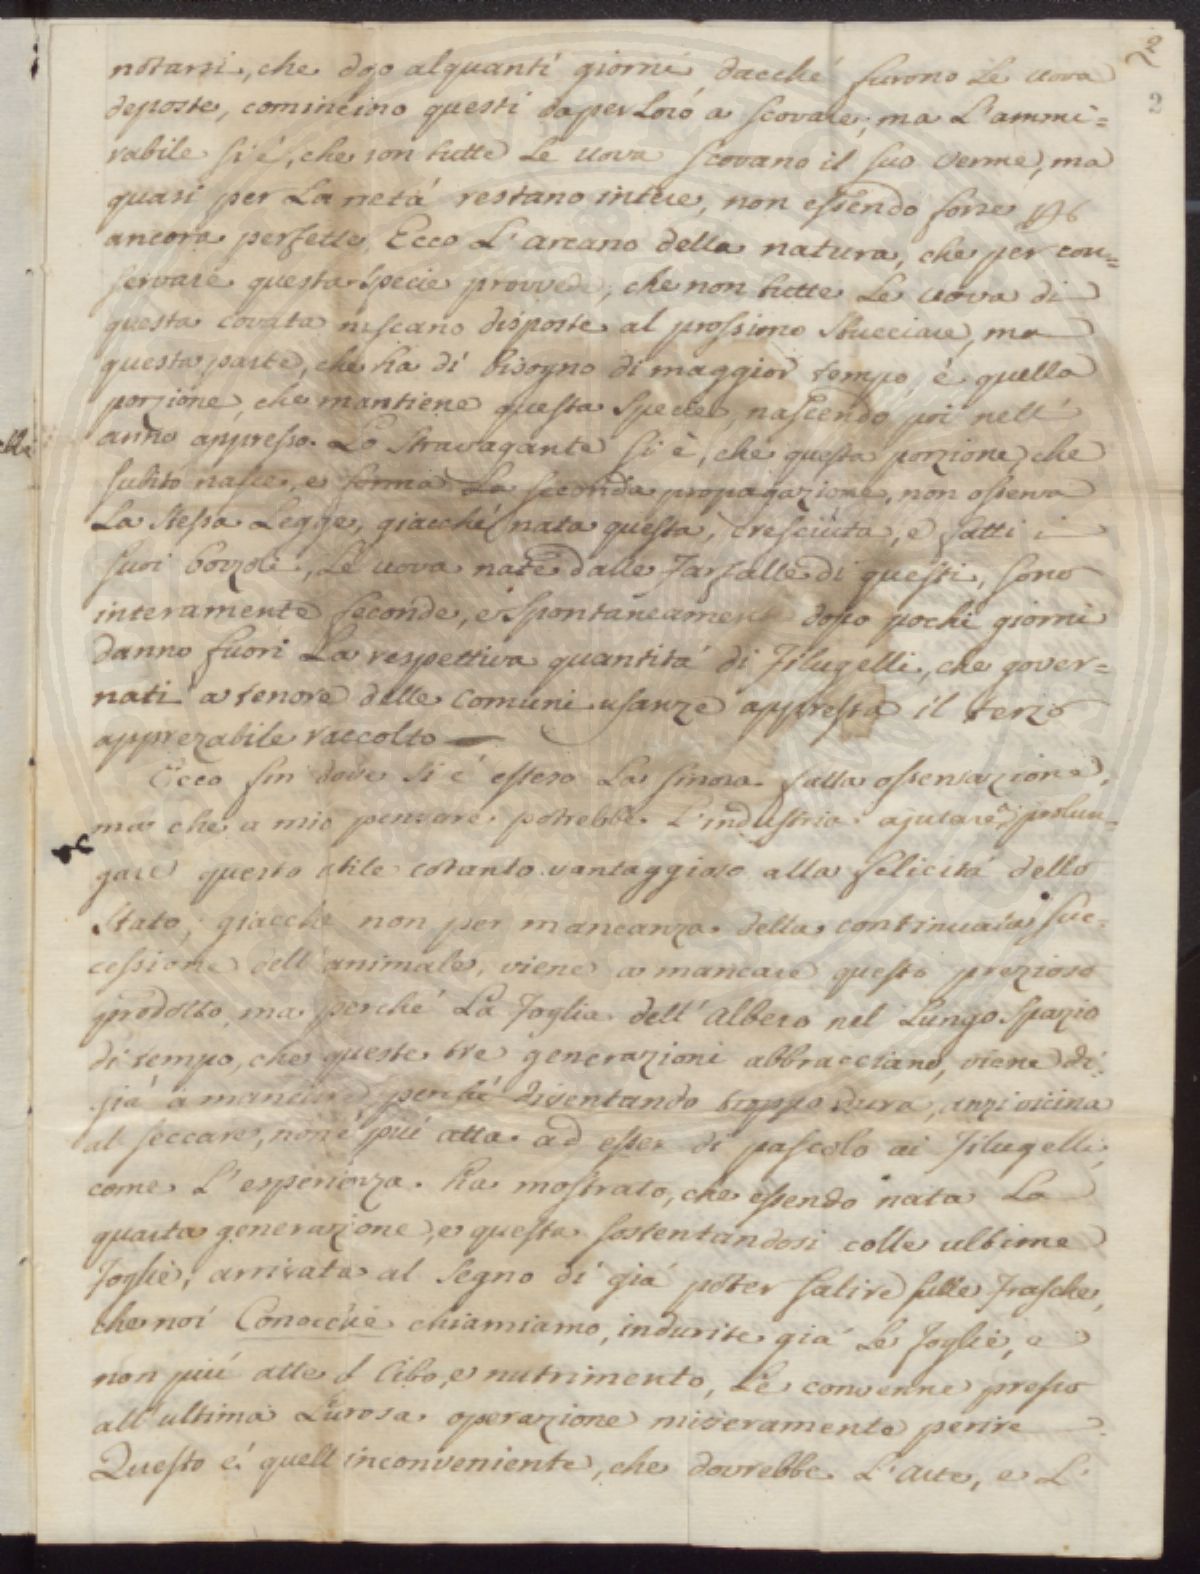 2
2
notarsi, che dopo alquanti giorni dacché furono le uova
deposte, comincino questi da per loro a scovare; ma l'ammi=
rabile si é, che non tutte le uova scovano il suo verme, ma
quasi per la metá restano intere, non essendo forse
ancora perfette. Ecco l'arcano della natura, che per con=
servare questa specie provvede, che non tutte le uova di
questa covata nascano disposte al prossimo sbucciare, ma
questa parte, che ha di bisogno di maggior tempo, é quella
porzione, che mantiene questa specie, nascendo poi nell'
anno appresso. Lo stravagante si è, che questa porzione, che
subito nasce, e forma la seconda propagazione, non osserva
la stessa legge, giacché nata questa, cresciuta, e fatti i
suoi bozzoli, le uova nate dalle farfalle di questi, sono
interamente feconde, e spontaneamente dopo pochi giorni
danno fuori la respettiva quantitá di filugelli, che gover=
nati a tenore delle comuni usanze appresta il terzo
apprezabile raccolto
Ecco fin dove si é esteso la sinora fatta osservazione,
ma che a mio pensare potrebbe l'industria ajutare, e prolun=
gare questo utile cotanto vantaggioso alla felicitá dello
Stato, giacche non per mancanza della continuata suc=
cessione dell'animale, viene a mancare questo prezioso
prodotto, ma perché la foglia dell'albero nel lungo spazio
di tempo, che queste tre generazioni abbracciano, viene di=
già a mancare, perché diventando troppo dura, anzi vicina
al seccare, non é piú atta ad esser di pascolo ai filugelli,
come l'esperienza ha mostrato, che essendo nata la
quarta generazione, e questa sostentandosi colle ultime
foglie, arrivata al segno di giá poter salire sulle frasche,
che noi Conocchie chiamiamo, indurite giá le foglie, e
non piú atte al cibo, e nutrimento, le convenne presso
all'ultima operazione miseramente perire
Questo é quell'inconveniente, che dovrebbe l'arte, e l'